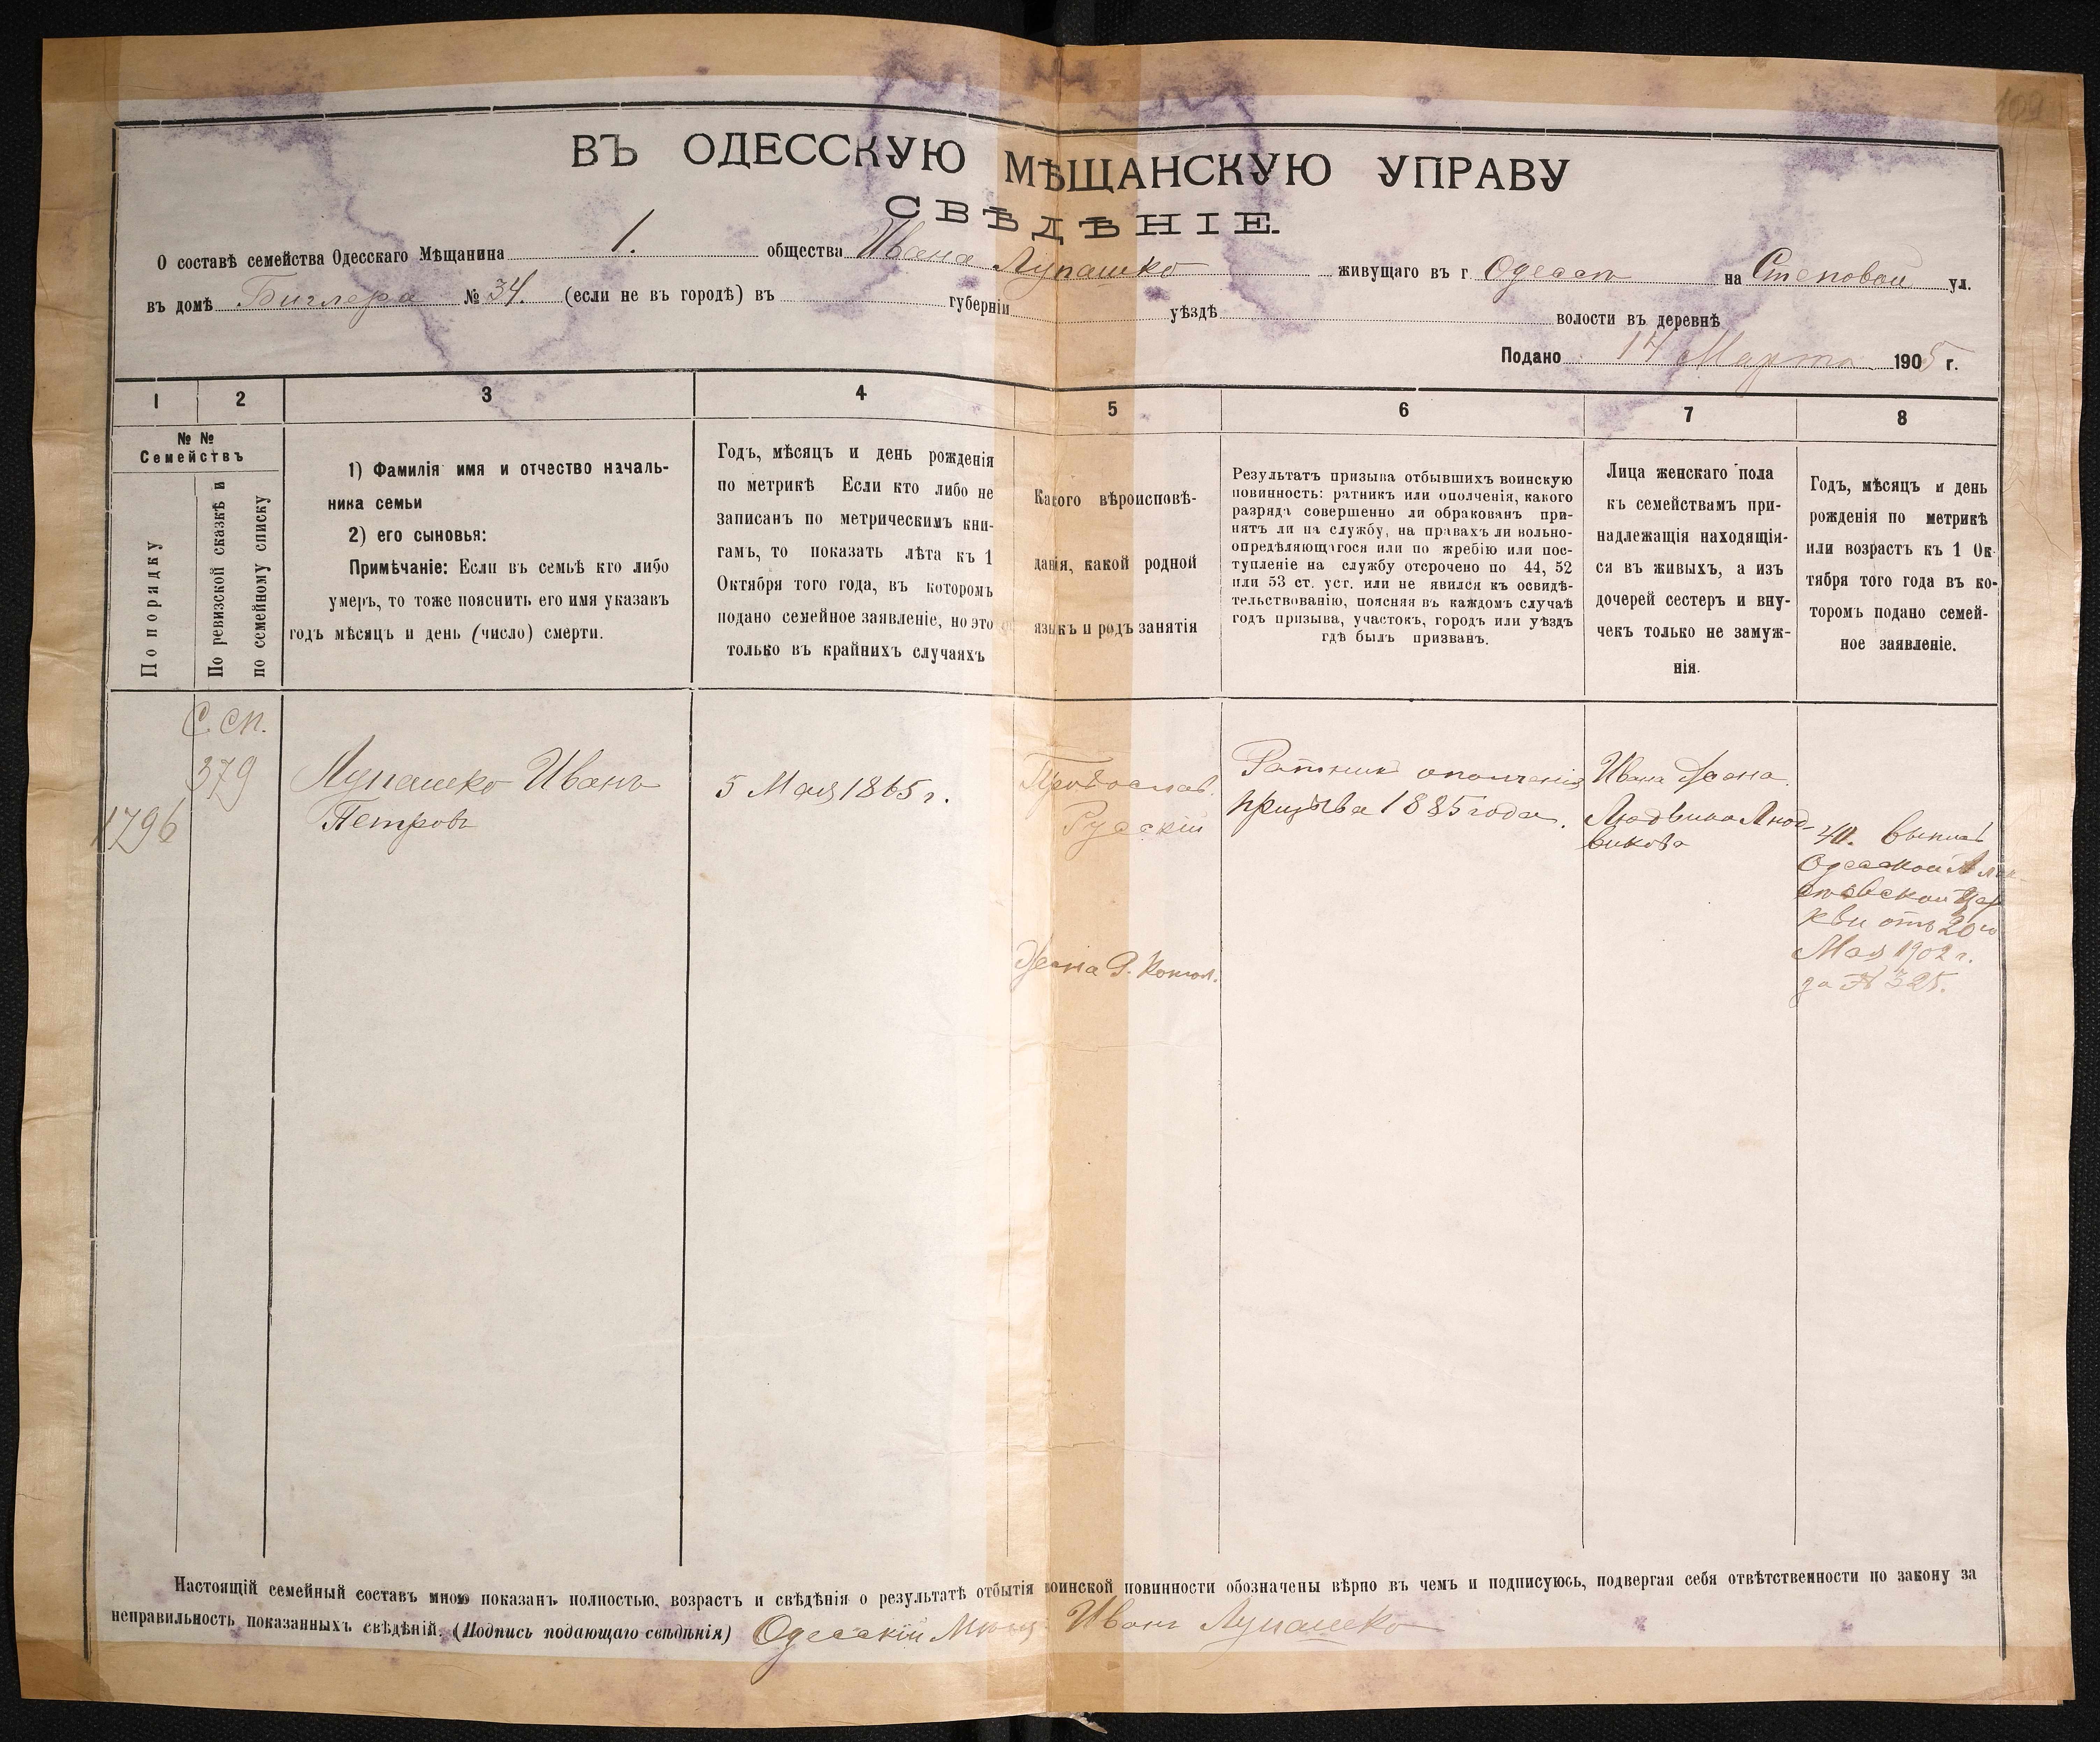 109
ВЪ ОДЕССКУЮ МѢЩАНСКУЮ УПРАВУ
СВѢДѢНІЕ.
О составѣ семейства Одесскаго Мѣщанина 1. общества Ивана Лупашко живущаго въ г Одессѣ на Степовой ул.
въ домѣ Биглера № 34. (если не въ городѣ) въ губерніи уѣздѣ волости въ деревнѣ
Подано 14 Марта 1905 г.
1 2 3 4 5 6 7 8
№ №
Семействъ
По порядку
По ревизской сказкѣ и
по семейному списку
1) Фамилія имя и отчество началь-
ника семьи
2) его сыновья:
Примѣчаніе: Если въ семьѣ кто либо
умеръ, то тоже пояснить его имя указавъ
годъ мѣсяцъ и день (число) смерти.
Годъ, мѣсяцъ и день рожденія
по метрикѣ Если кто либо не
записанъ по метрическимъ кни-
гамъ, то показать лѣта къ 1
Октября того года, въ которомъ
подано семейное заявленіе, но это
только въ крайнихъ случаяхъ
Какого вѣроисповѣ-
данія, какой родной
языкъ и родъ занятія
Результатъ призыва отбывшихъ воинскую
повинность: ратникъ или ополченія, какого
разряда совершенно ли обракованъ при-
нятъ ли на службу, на правахъ ли вольно-
опредѣляющагося или по жребію или пос-
тупленіе на службу отсрочено по 44, 52
или 53 ст. уст. или не явился къ освидѣ-
тельствованію, поясняя въ каждомъ случаѣ
годъ призыва, участокъ, городъ или уѣздъ
гдѣ былъ призванъ.
Лица женскаго пола
къ семействамъ при-
надлежащія находящія-
ся въ живыхъ, а изъ
дочерей сестеръ и вну-
чекъ только не замуж-
нія.
Годъ, мѣсяцъ и день
рожденія по метрикѣ
или возрастъ къ 1 Ок-
тября того года въ ко-
торомъ подано семей-
ное заявленіе.
С. сп.
379
1796
Лупашко Иванъ
Петровъ
5 Мая 1865 г.
Православ.
Русскій
Жена Р. Катол.
Ратникъ ополченія
призыва 1885 года.
Ивана Жена
Людвика Люд-
викова
40. выпись
Одесской
отъ 20го
Мая 1902 г.
за № 325.
Настоящій семейный составъ мною показанъ полностью, возрастъ и свѣдѣнія о результатѣ отбытія воинской повинности обозначены вѣрно въ чемъ и подписуюсь, подвергая себя отвѣтственности по закону за
неправильность показанныхъ свѣдѣній. (Подпись подающаго свѣдѣнія) Одесскій Мѣщ. Иванъ Лупашко